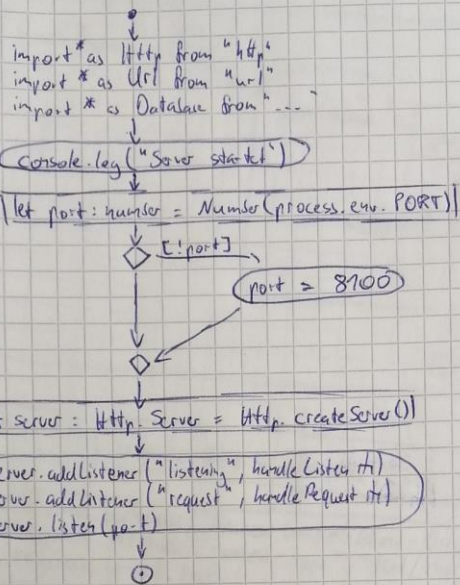 import * as Http from "http"
import * as Url from "url"
import * as Database from "...
console.log("Server startet")
let port: number = Number(process.env.PORT)
[!port]
port = 8100
server: Http.Server = Http.createServer()
erver.addListener("listening", handleListen
ver.addListener("request", handleRequest
erver.listen(port)